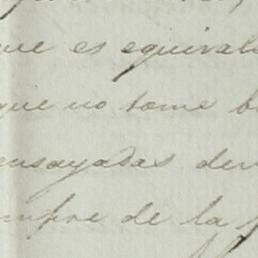 que es equival
que no tome b
ensayadas den
mpre de la f